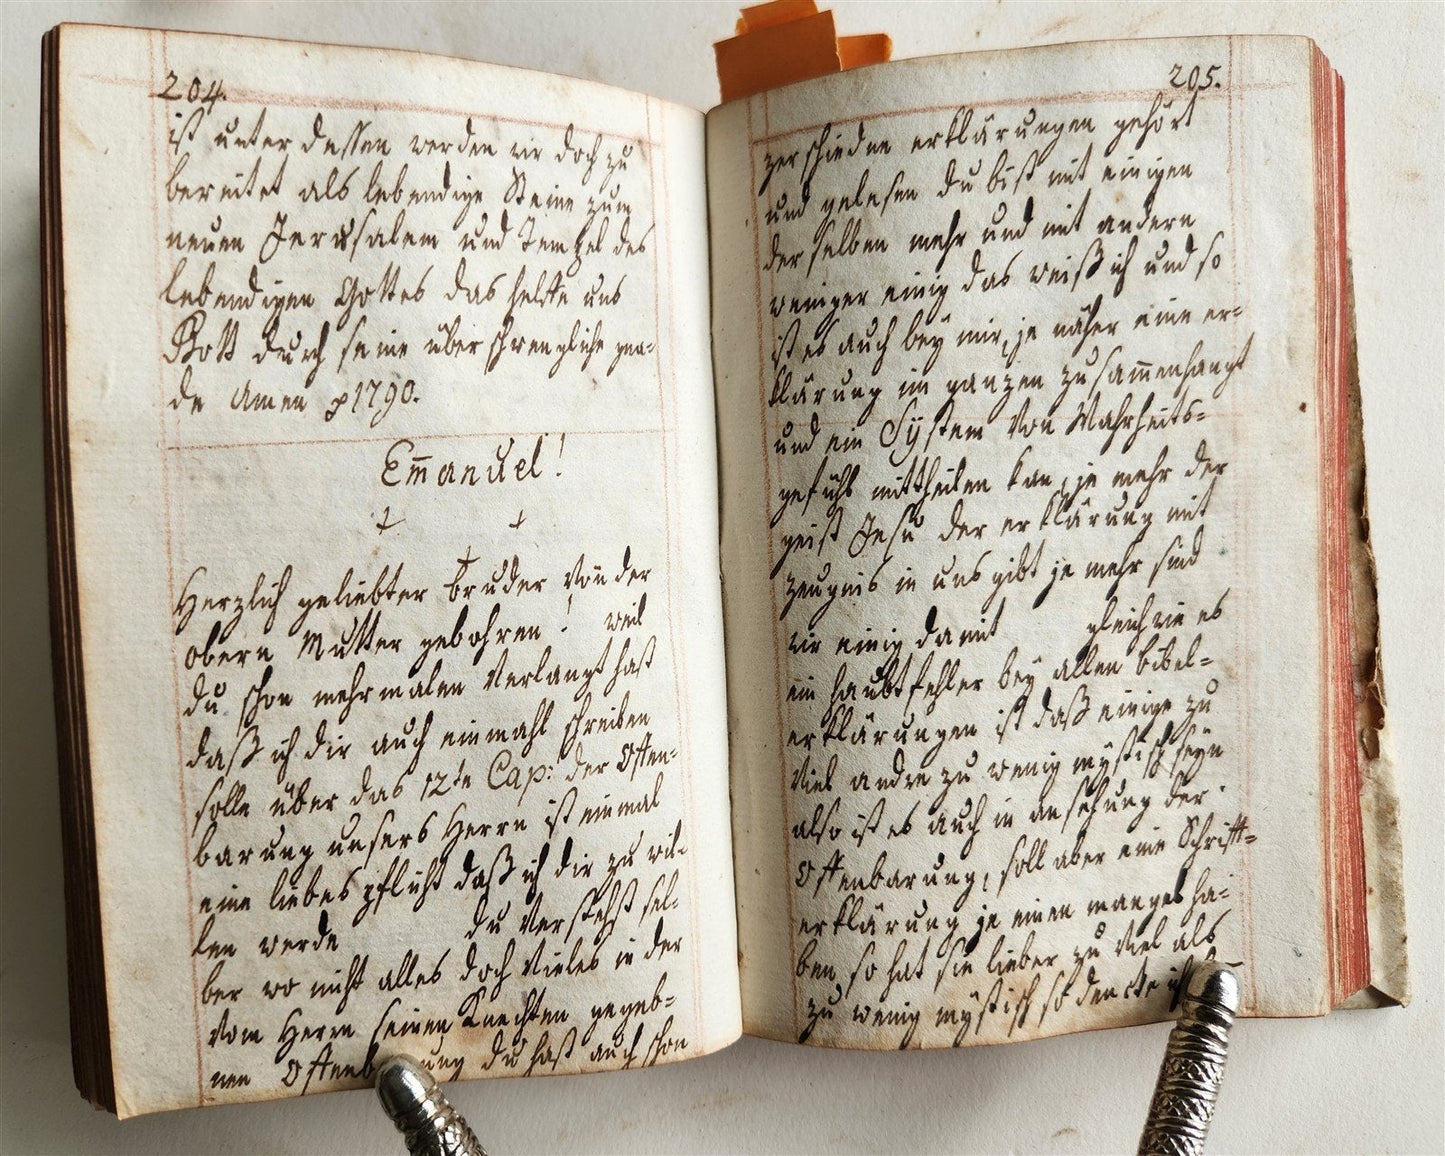 204.
ist unter dessen werden wir doch zu
bereitet als lebendige Steine zum
neuen Jerusalem und Tempel des
lebendigen Gottes das helffe uns
Gott durch seine überschwengliche gna=
de Amen 1790.
Em̅anuel!
Herzlich geliebter bruder von der
obern Mutter gebohren! weil
du schon mehrmalen Verlangt hast
daß ich dir auch einmahl schreiben
solle über das 12te Cap: der Offen=
barung unsers Herrn ist einmal
eine liebes pflicht daß ich dir zu wil=
len werde du Verstehst sel=
ber wo nicht alles doch Vieles in der
Vom Herrn seinen Knechten gegeb=
nen Offenb ung du hast auch schon
205.
verschiedne erklärungen gehört
und gelesen du bist mit einigen
derselben mehr und mit andern
weniger einig das weiß ich und so
ist es auch bey mir, je näher eine er=
klärung im ganzen zusam̅enhangt
und ein System Von Wahrheits=
gefühl mittheilen kan, je mehr der
geist Jesu der erklärung mit
zeugnis in uns gibt je mehr sind
wir einig damit gleich wie es
ein haubtfehler bey allen bibel=
erklärungen ist daß einige zu
Viel andre zu wenig mÿstisch seyn
also ist es auch in ansehung der
Offenbarung, soll aber eine Schrifft=
erklärung je einen mangel ha=
ben so hat sie lieber zu Viel als
zu wenig mÿstisch so dencke ich